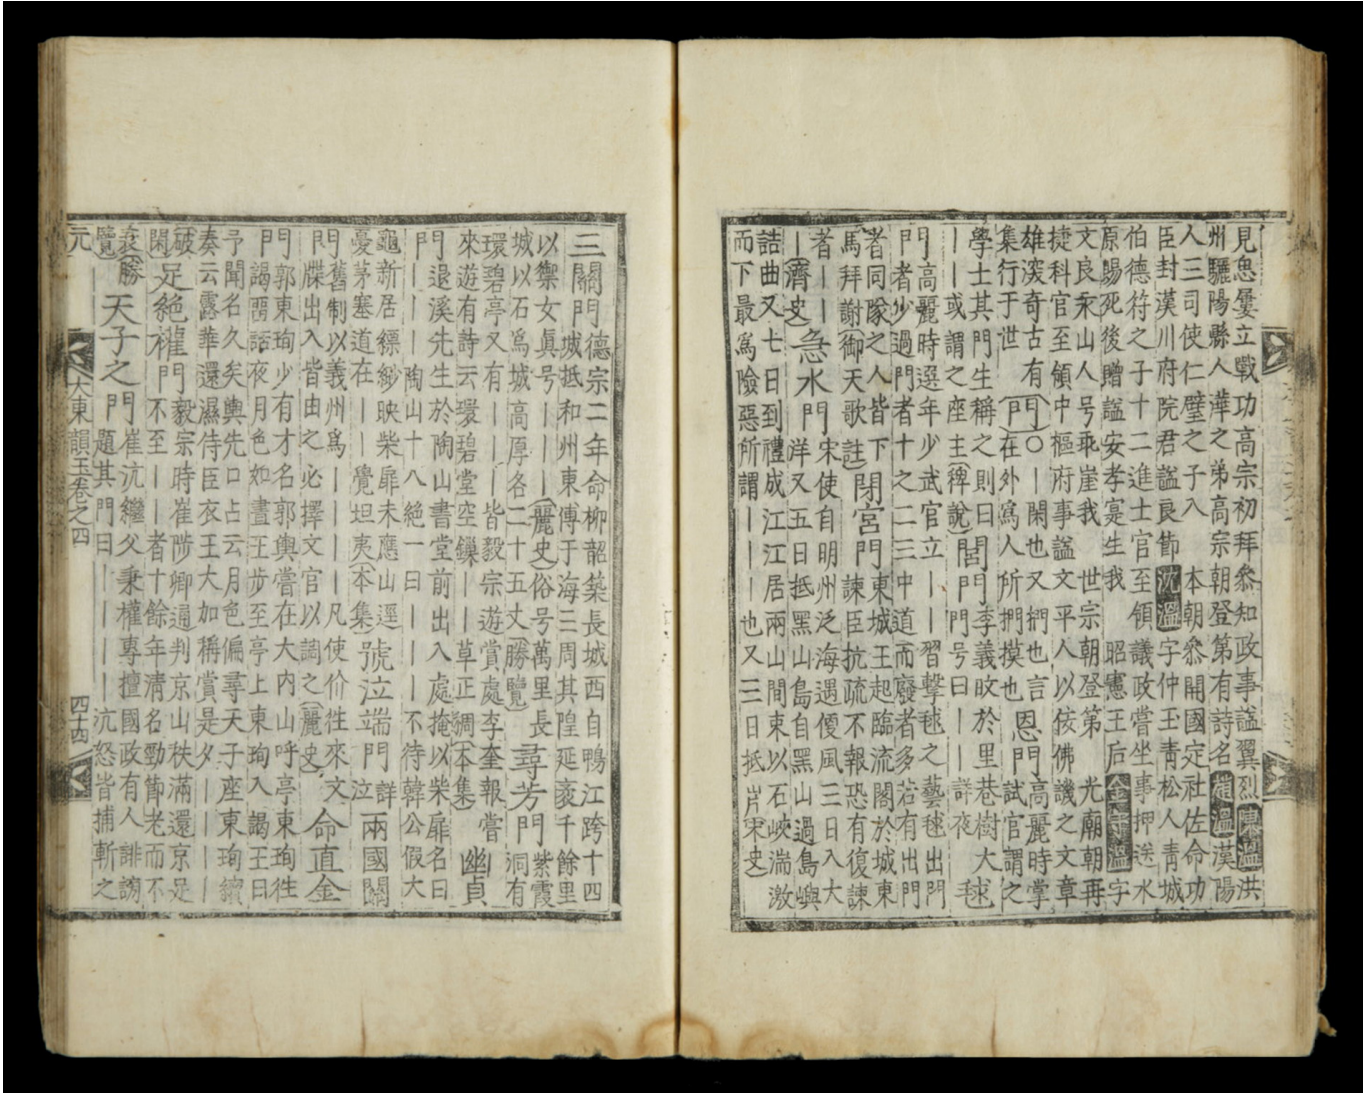 見忽屢立戰功高宗初拜叅知政事謚翼烈 廉溫 洪
州驪陽縣人㵯之弟高宗朝登第有詩名 趙溫 漢陽
人三司使仁璧之子入 本朝叅開國定社佐命功
臣封漢川府院君謚良節 沈溫 字仲玉靑松人靑城
伯德符之子十二進士官至領議政嘗坐事押送水
原賜死後贈謚安孝寔生我 昭憲王后 金守溫 字
文良永山人号乖崖我 世宗朝登第 光廟朝再
捷科官至領中樞府事謚文平人以佞佛譏之文章
雄深奇古有
集行于世 門 ○丨閑也又捫也言
在外爲人所捫摸也 恩門 高麗時掌
試官謂之
學士其門生稱之則曰
丨丨或謂之座主(稗說) 閭門 李義旼於里巷樹大
門門号曰丨丨詳夜 毬
門 高麗時選年少武官立丨丨習擊毬之藝毬出門
門者少過門者十之二三中道而廢者多若有出門
者同隊之人皆下
馬拜謝(御天歌註) 閉宮門 東城王起臨流閣於城東
諫臣抗疏不報恐有復諫
者丨丨
丨(濟史) 急水門 宋使自明州泛海遇便風三日入大
洋又五日抵黑山島自黑山過島嶼
詰曲又七日到禮成江江居兩山間束以石峽湍激
而下最爲險惡所謂丨丨丨也又三日抵岸(宋史)
三關門 德宗二年命柳韶築長城西自鴨江跨十四
城抵和州東傅于海三周其隍延袤千餘里
以禦女眞号丨丨丨(麗史)俗号萬里長
城以石爲城高厚各二十五丈(勝覽) 尋芳門 紫霞
洞有
環碧亭又有丨丨丨皆毅宗遊賞處李奎報嘗
來遊有詩云環碧堂空鏁丨丨草正稠(本集) 幽貞
門 退溪先生於陶山書堂前出入處掩以柴扉名曰
丨丨丨陶山十八絶一曰丨丨丨不待韓公假大
龜新居縹緲映柴扉未應山逕
憂茅塞道在丨丨覺坦夷(本集) 號泣端門 詳
泣 兩國關
門 舊制以義州爲丨丨凡使价徃來文
牒出入皆由之必擇文官以調之(麗史) 命直金
門 郭東珣少有才名郭輿嘗在大內山呼亭東珣徃
謁畱話夜月色如晝王步至亭上東珣入謁王曰
予聞名久矣輿先口占云月色偏尋天子座東珣續
奏云露華還濕侍臣衣王大加稱賞是夕丨丨丨丨
(破
閑) 足絶權門 毅宗時崔陟卿通判京山秩滿還京足
不至丨丨者十餘年淸名勁節老而不
衰(勝
覽) 天子之門 崔沆繼父秉權專擅國政有人誹謗
題其門曰丨丨丨丨沆怒皆捕斬之
元
大東韻玉卷之四
四十四